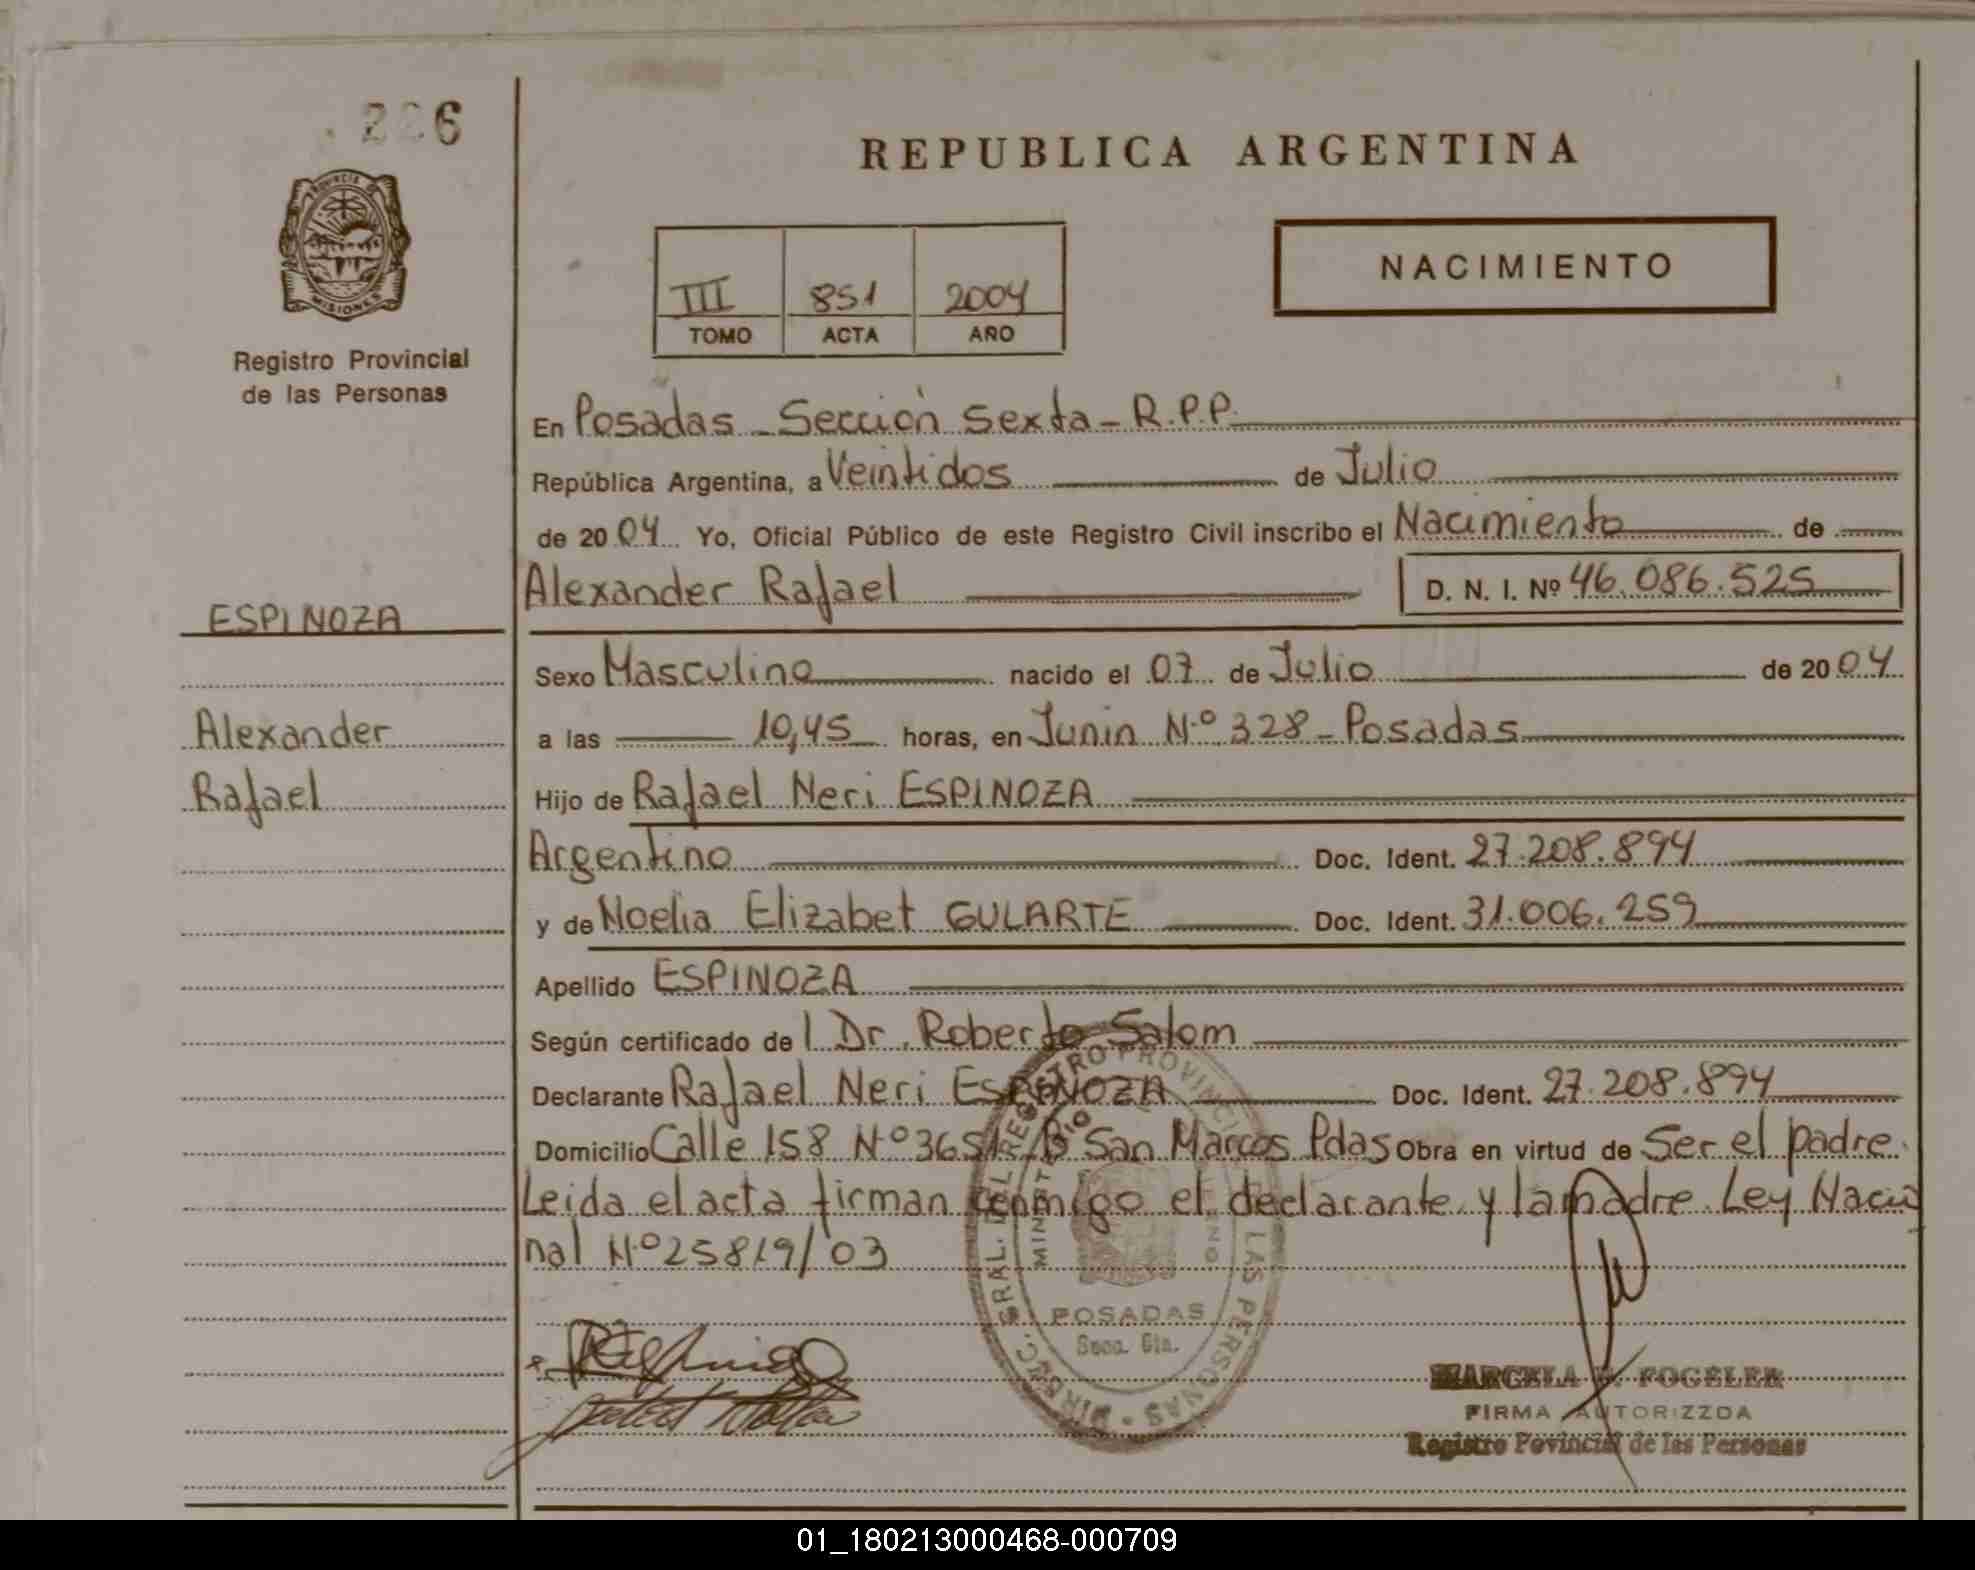 226
REPUBLICA ARGENTINA
PROVINCIA DE
MISIONES
Registro Provincial
de las Personas
III 851 2004
TOMO ACTA AÑO
NACIMIENTO
En Posadas - Sección Sexta - R.P.P.
República Argentina, a Veintidos de Julio
de 2004 Yo, Oficial Público de este Registro Civil inscribo el Nacimiento de
Alexander Rafael D. N. I. Nº 46.086.525
ESPINOZA
Sexo Masculino nacido el 07 de Julio de 2004
Alexander
a las 10,45 horas, en Junin Nº 328 - Posadas
Rafael
Hijo de Rafael Neri ESPINOZA
Argentino Doc. Ident. 27.208.894
y de Noelia Elizabet GULARTE Doc. Ident. 31.006.259
Apellido ESPINOZA
Según certificado de l Dr. Roberto Salom
Declarante Rafael Neri ESPINOZA Doc. Ident. 27.208.894
Domicilio Calle 158 Nº 3651 Bº San Marcos Pdas Obra en virtud de Ser el padre.
Leida el acta firman conmigo el declarante y la madre. Ley Nacio
nal Nº 25819/03
POSADAS
Secc. 6ta.
MARCELA FOGELER
FIRMA AUTORIZZDA
Registro Povincial de las Personas
01_180213000468-000709